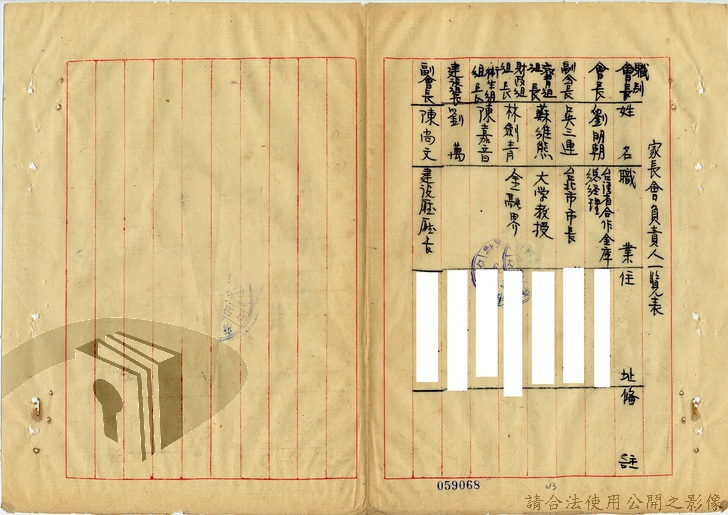 家長會負責人一覽表
職別 姓名 職業 住址 備註
會長 劉明朝 台灣省合作金庫總經理
副會長 吳三連 台北市市長
組長 蘇維熊 大学教授
財政組組長 林劍青 金融界
衛生組組長 陳嘉音
建設組長 劉萬
副會長 陳尚文 建设廳廳長
059068
請合法使用公開之影像